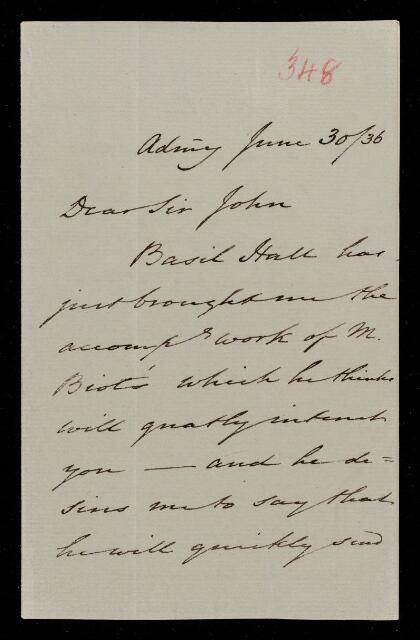 348
Admty June 30/36
Dear Sir John
Basil Hall has
just brought me the
accompg work of M.
Biot's which he thinks
will greatly interest
you — and he de=
sires me to say that
he will quickly send